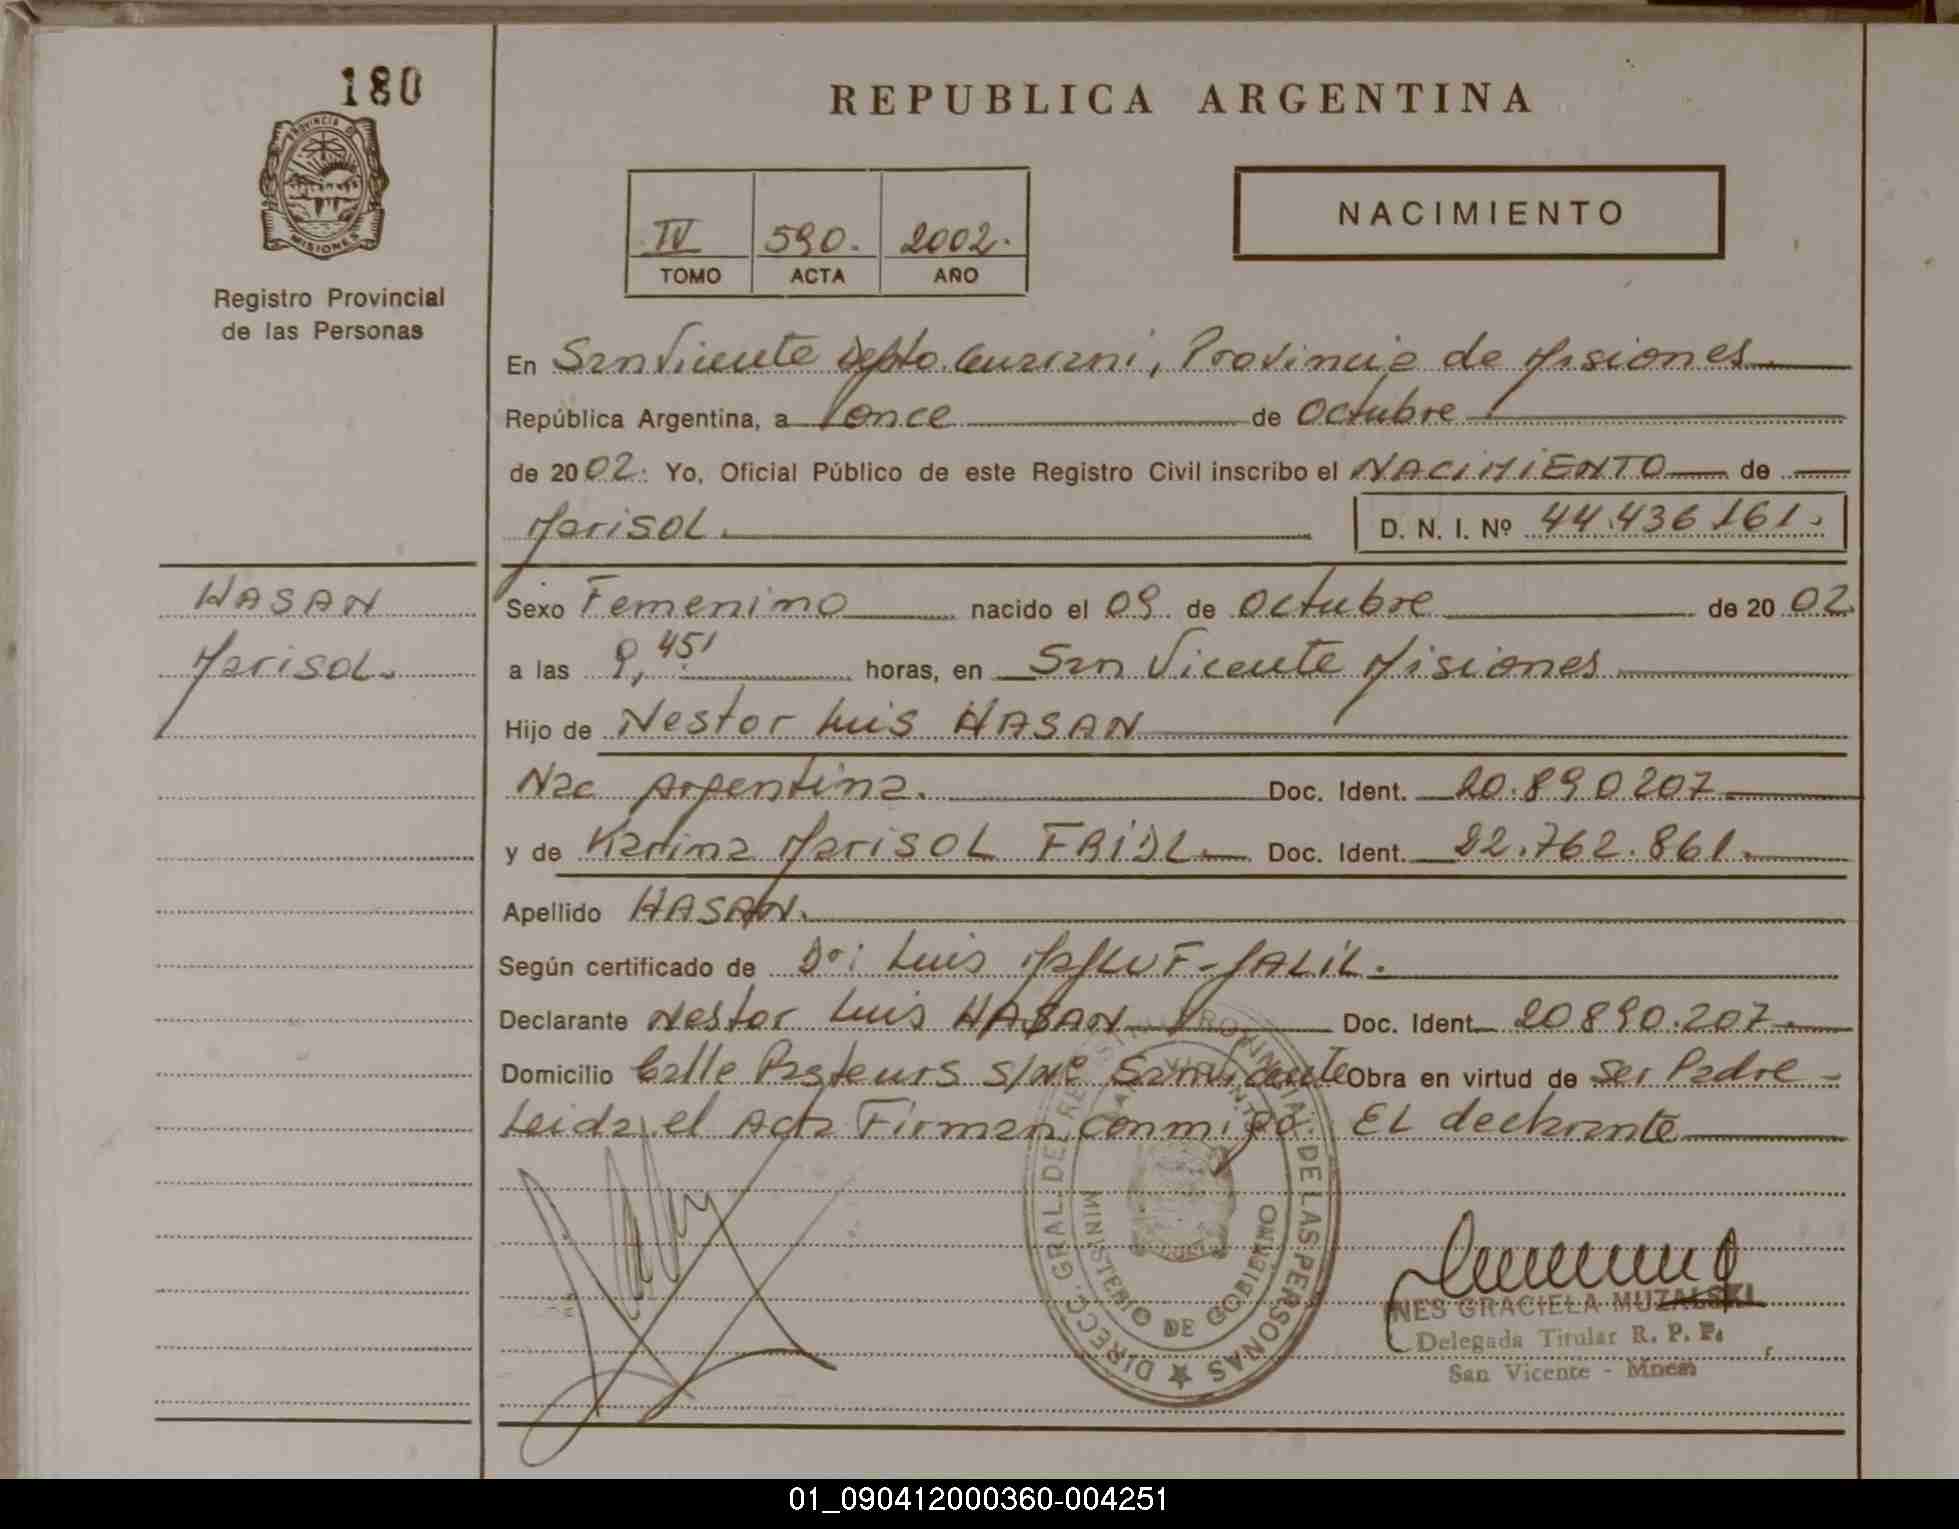 180
PROVINCIA DE
MISIONES
Registro Provincial
de las Personas
REPUBLICA ARGENTINA
IV 590. 2002.
TOMO ACTA AÑO
NACIMIENTO
En San Vicente Depto. Guarani, Provincia de Misiones.
República Argentina, a once de Octubre
de 2002. Yo, Oficial Público de este Registro Civil inscribo el NACIMIENTO de
Marisol. D. N. I. Nº 44.436.161.
HASAN
Marisol.
Sexo Femenino nacido el 09 de Octubre de 2002
a las 9,45' horas, en San Vicente Misiones
Hijo de Nestor Luis HASAN
Nac Argentina. Doc. Ident. 20.890207
y de Karina Marisol FRIDL Doc. Ident. 22.762.861.
Apellido HASAN.
Según certificado de Dr: Luis GALIL.
Declarante Nestor Luis HASAN Doc. Ident. 20890.207.
Domicilio Calle Pasteurs s/Nº San Vicente Obra en virtud de ser Padre
Leida el Acta Firman conmigo EL declarante
DIRECC. GRAL. DE REGISTRO PROVINCIAL DE LAS PERSONAS
SAN VICENTE
MINISTERIO DE GOBIERNO
INES GRACIELA MUZALSKI
Delegada Titular R. P. P.
San Vicente - Mnes
01_090412000360-004251